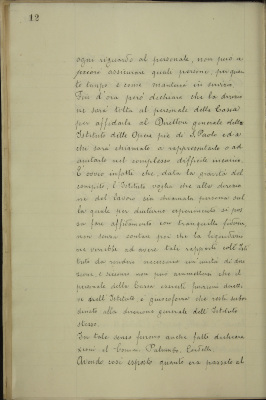 12
ogni riguardo al personale, non può a
priori assicurare quali persone, per quan
to tempo e come mantiene in servizio.
Fin d'ora però dichiara che la direzio
ne sarà tolta al personale della Cassa
per affidarla al Direttore generale dell'
Istituto delle Opere pie di S. Paolo ed a
che sarà chiamato a rappresentarlo o ad
aiutarlo nel complesso difficile incarico.
È ovvio infatti che, data la gravità del
compito, l'Istituto voglia che alla direzio
ne del lavoro sia chiamata persona sul
la quale per duratura esperienza si pos
sa fare affidamento con tranquilla fiducia,
non senza contare poi che la liquidazio
ne verrebbe ad avere tali rapporti coll'Isti
tuto da rendere necessaria un'unità di dire
zione, e invero non può ammettersi che il
personale della Cassa eserciti funzioni dirette
se nell'Istituto, e giuocoforza che resti subor
dinato alla direzione generale dell'Istituto
stesso.
In tale senso furono anche fatte dichiara
zioni al Comm. Palomba,
Avendo così esposto quanto era passato al